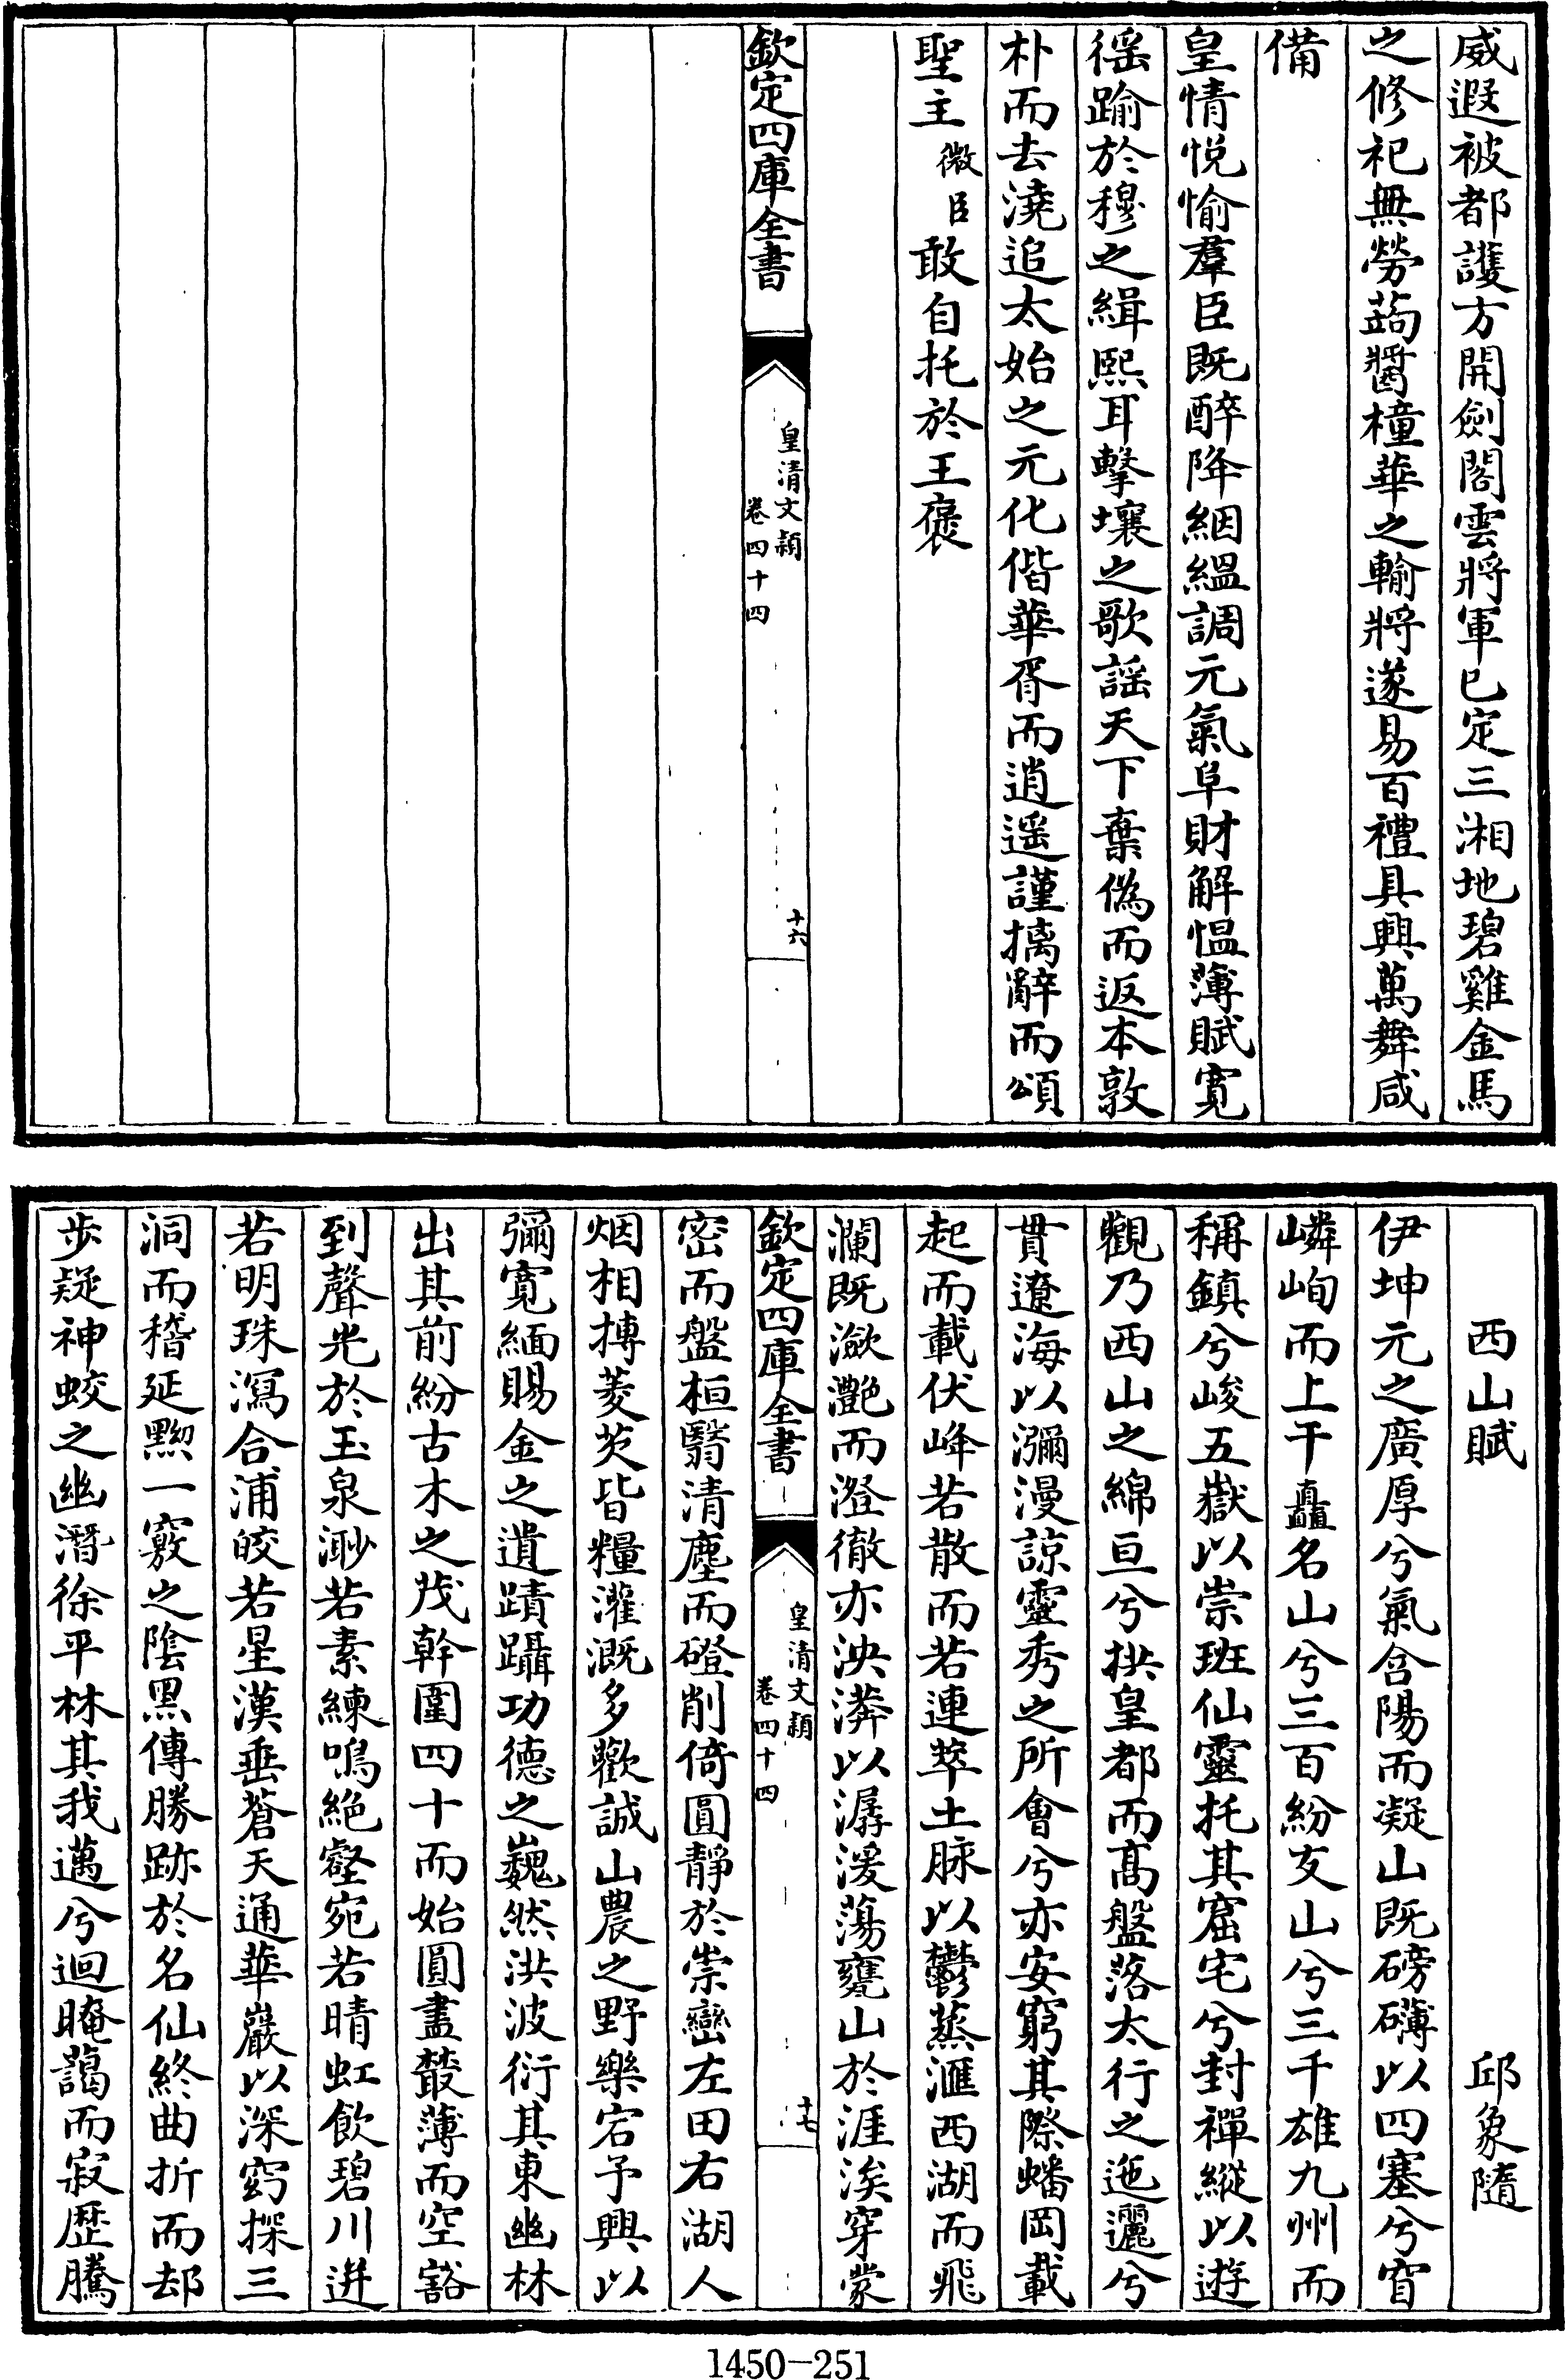 威遐被都護方開劍閣雲將軍已定三湘地碧雞金馬
之修祀無勞蒟醬橦華之輸將遂易百禮具興萬舞咸
備
皇情悦愉羣臣既醉降絪緼調元氣阜財解愠薄賦寛
徭踰於穆之緝熙耳擊壤之歌謡天下棄偽而返本敦
朴而去澆追太始之元化偕華胥而逍遥謹摛辭而頌
聖主微臣敢自托於王褒
欽定四庫全書
皇清文穎
卷四十四
十六
西山賦 邱象隨
伊坤元之廣厚兮氣含陽而凝山既磅礴以四塞兮窅
嶙峋而上干矗名山兮三百紛支山兮三千雄九州而
稱鎮兮峻五嶽以崇班仙靈托其窟宅兮封禪縱以遊
觀乃西山之綿亘兮拱皇都而髙盤落太行之迤邐兮
貫遼海以瀰漫諒靈秀之所會兮亦安窮其際蟠岡載
起而載伏峰若散而若連萃土脉以鬱蒸滙西湖而飛
瀾既瀲灧而澄徹亦泱漭以潺湲蕩甕山於涯涘穿蒙
欽定四庫全書
皇清文穎
卷四十四
十七
密而盤桓翳清塵而磴削倚圓靜於崇巒左田右湖人
烟相摶菱芡皆糧灌溉多歡誠山農之野樂宕予興以
彌寛緬賜金之遺蹟躡功德之巍然洪波衍其東幽林
出其前紛古木之茂幹圍四十而始圓盡叢薄而空豁
到聲光於玉泉渺若素練鳴絶壑宛若晴虹飲碧川迸
若明珠瀉合浦皎若星漢垂蒼天通華巖以深窈探三
洞而稽延黝一竅之陰黑傳勝跡於名仙終曲折而却
步疑神蛟之幽潛徐平林其我邁兮迴晻藹而寂歴騰
1450-251